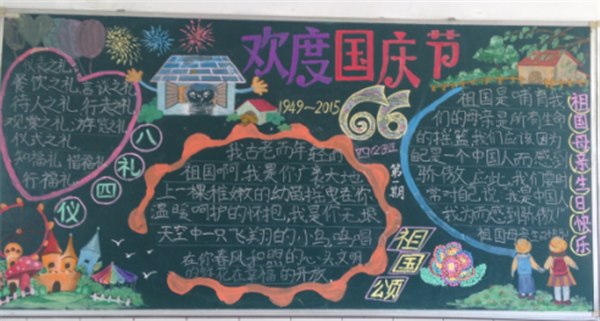 欢度国庆节
1949~2015
66
四(2)班
第 期
仪表之礼
餐饮之礼 言谈之礼
待人之礼 行走之礼
观赏之礼 游览之礼
仪式之礼
知福礼 惜福礼
行福礼
八礼四仪
我古老而年轻的
祖国啊,我是你广袤大地
上一棵稚嫩的幼苗,摇曳在你
温暖呵护的怀抱,我是你无垠
天空中一只飞翔的小鸟,鸣唱
在你春风和煦的心头,文明
的鲜花在幸福的开放
祖国颂
祖国是哺育我
们的母亲是所有生命
的摇篮我们应该因为
自己是一个中国人而感到
骄傲
常对自己说,我是中国人
我为而感到骄傲!
祖国母亲生日快乐
祖国母亲生日快乐